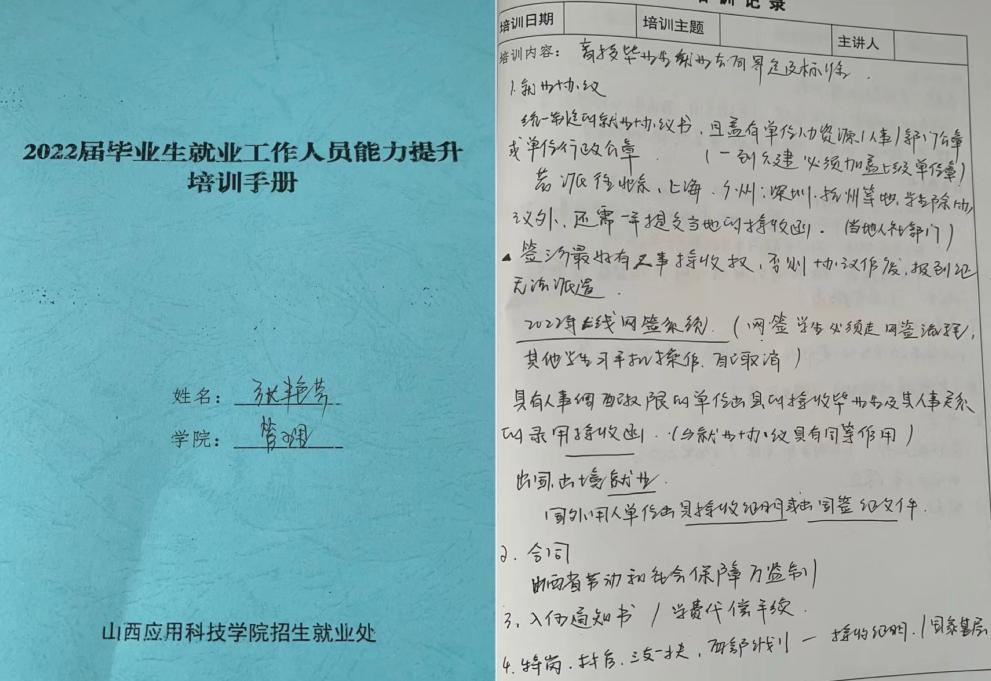 2022届毕业生就业工作人员能力提升
培训手册
姓名：张艳芳
学院：管理
山西应用科技学院招生就业处
培训记录
培训日期 培训主题 主讲人
培训内容：高校毕业生就业去向界定及标准.
1.就业协议
统一制定的就业协议书，且盖有单位人力资源（人事）部门公章
或单位行政公章. （一到六建必须加盖上级单位章）
若派往北京、上海、广州；深圳、杭州等地，学生除协
议外，还需一并提交当地的接收函.（当地人社部门）
▲签订最好有人事接收权，否则协议作废，报到证
无法派遣.
2022年在线网签系统.（网签学生必须走网签流程，
其他学生可手机操作.自己取消）
具有人事调配权限的单位出具的接收毕业生及其人事关系
的录用接收函.（与就业协议具有同等作用）
出国、出境就业.
国外用人单位出具接收证明或出国签证文件.
2.合同
山西省劳动和社会保障厅监制
3、入伍通知书 / 学费代偿手续.
4.特岗.村官.三支一扶，西部计划 — 接收证明.（国家基层